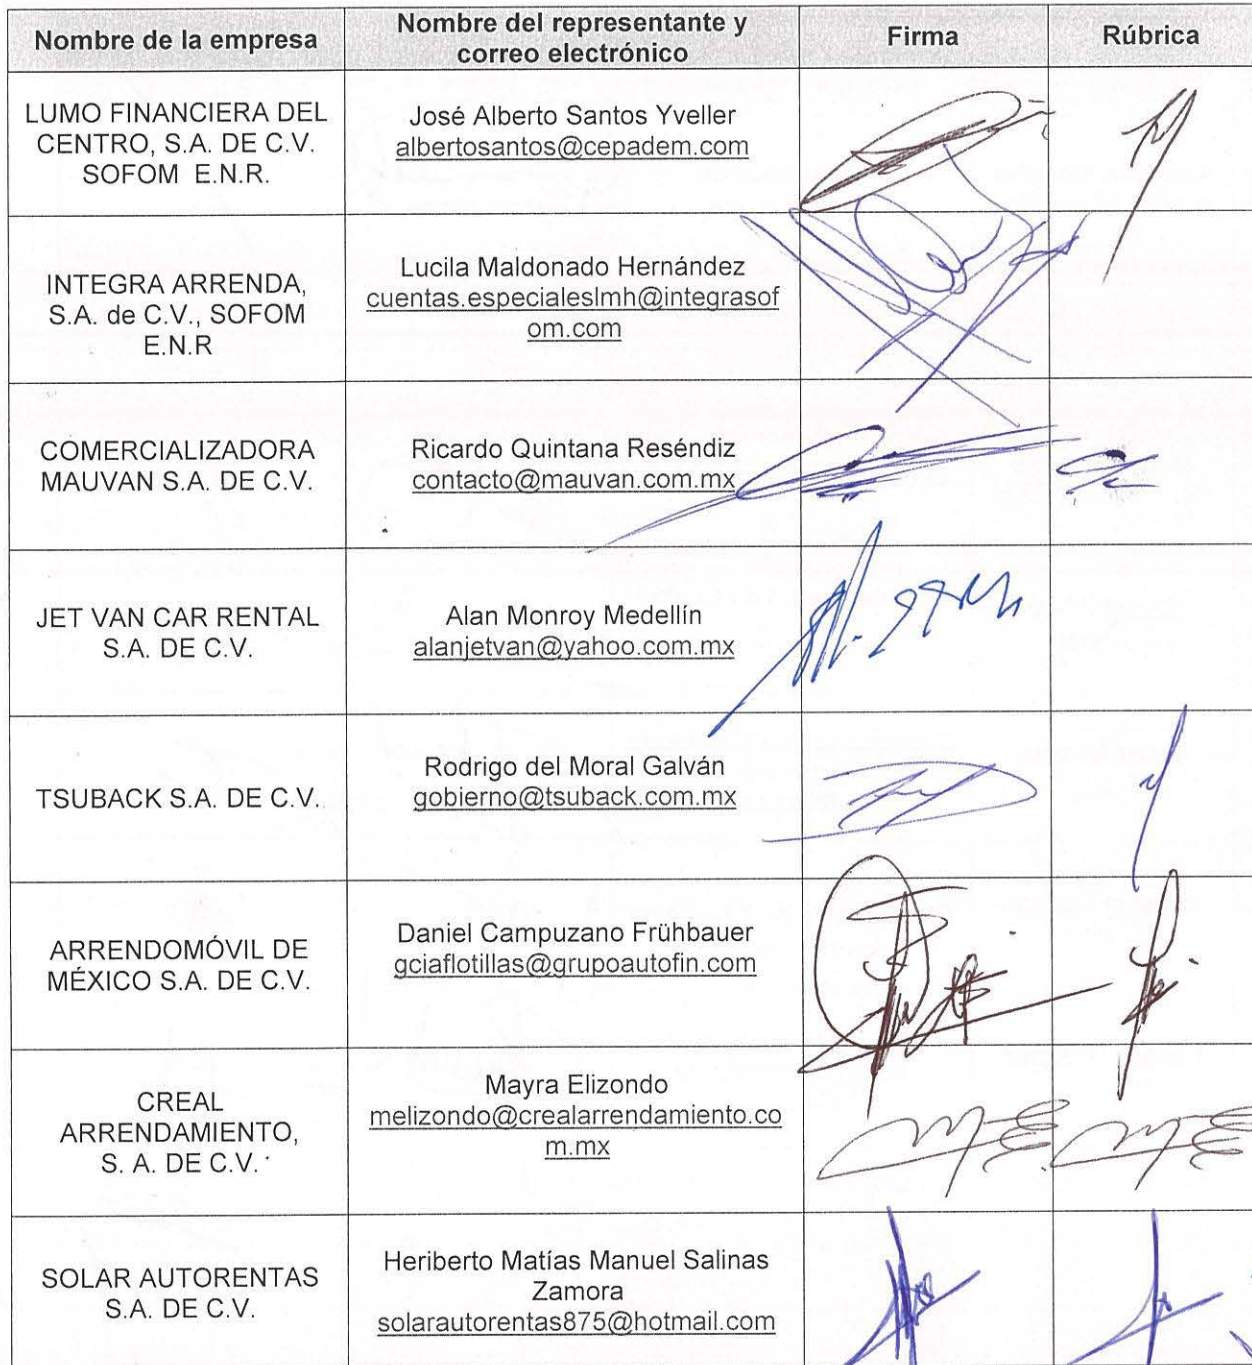 Nombre de la empresa
Nombre del representante y
correo electrónico
Firma
Rúbrica
LUMO FINANCIERA DEL
CENTRO, S.A. DE C.V.
SOFOM E.N.R.
José Alberto Santos Yveller
albertosantos@cepadem.com
INTEGRA ARRENDA,
S.A. de C.V., SOFOM
E.N.R
Lucila Maldonado Hernández
cuentas.especialeslmh@integrasof
om.com
COMERCIALIZADORA
MAUVAN S.A. DE C.V.
Ricardo Quintana Reséndiz
contacto@mauvan.com.mx
JET VAN CAR RENTAL
S.A. DE C.V.
Alan Monroy Medellín
alanjetvan@yahoo.com.mx
TSUBACK S.A. DE C.V.
Rodrigo del Moral Galván
gobierno@tsuback.com.mx
ARRENDOMÓVIL DE
MÉXICO S.A. DE C.V.
Daniel Campuzano Frühbauer
gciaflotillas@grupoautofin.com
CREAL
ARRENDAMIENTO,
S. A. DE C.V.
Mayra Elizondo
melizondo@crealarrendamiento.co
m.mx
SOLAR AUTORENTAS
S.A. DE C.V.
Heriberto Matías Manuel Salinas
Zamora
solarautorentas875@hotmail.com